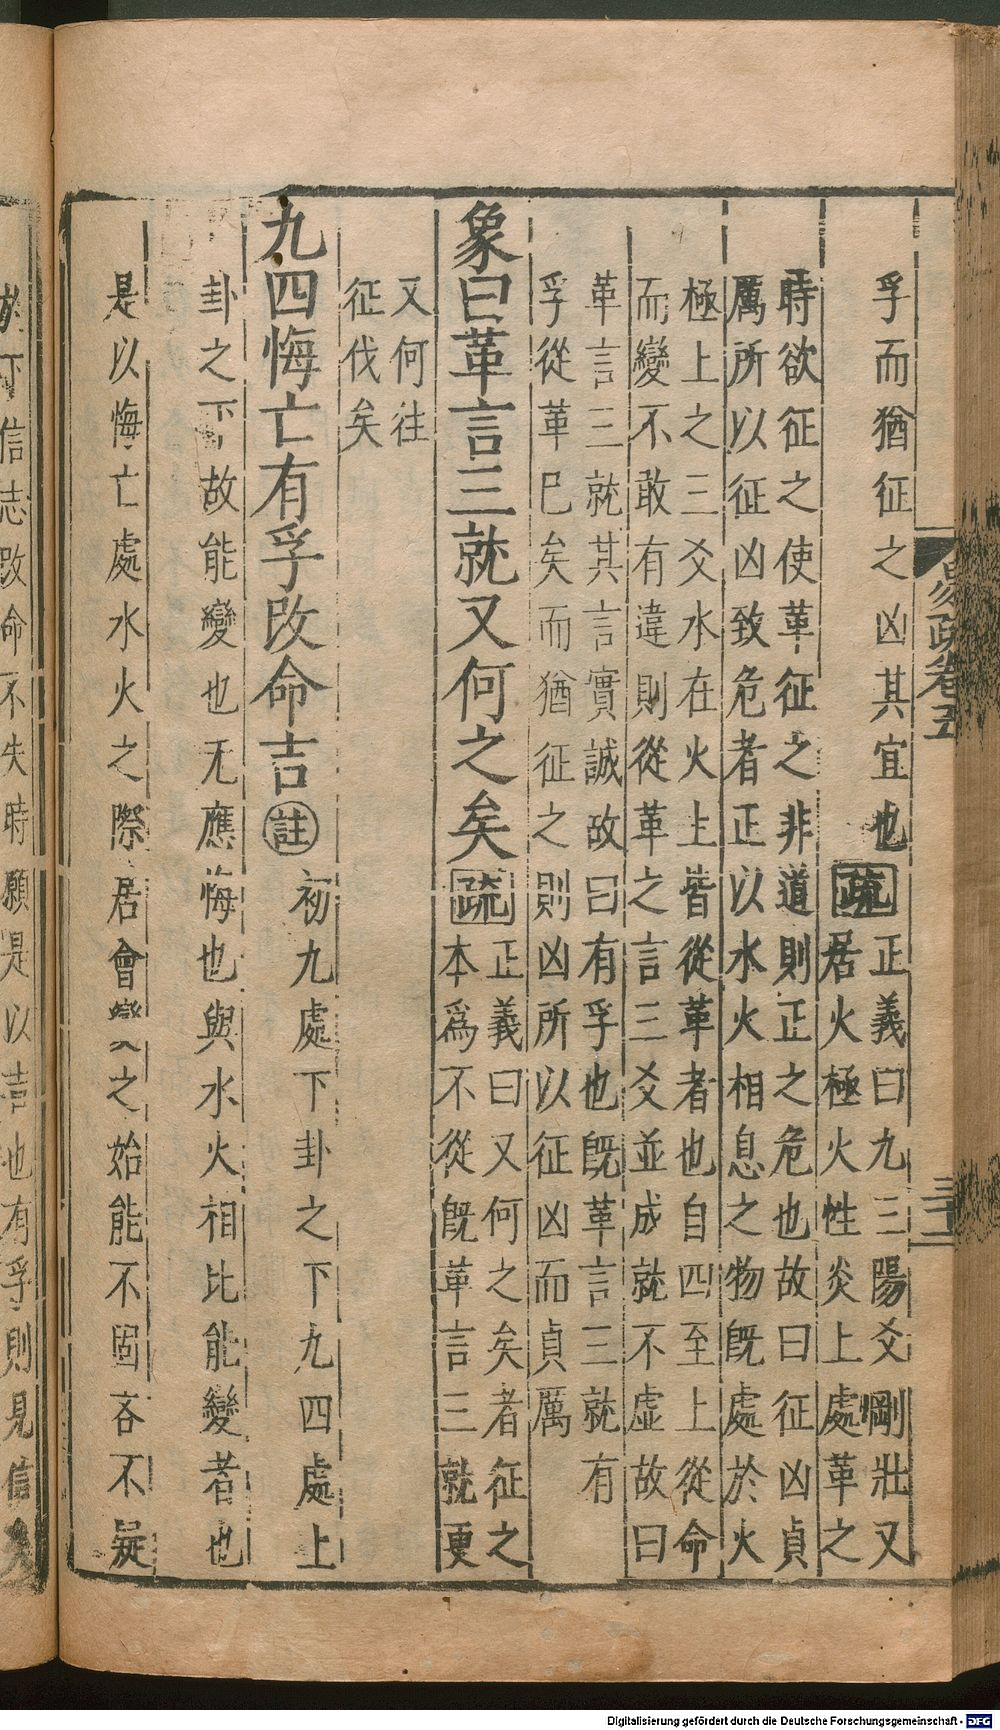 孚而猶征之凶其宜也疏正義曰九三陽爻剛壯又
居火極火性炎上處革之
時欲征之使革征之非道則正之危也故曰征凶貞
厲所以征凶致危者正以水火相息之物既處於火
極上之三爻水在火上皆從革者也自四至上從命
而變不敢有違則從革之言三爻並成就不虛故曰
革言三就其言實誠故曰有孚也既革言三就有
孚從革已矣而猶征之則凶所以征凶而貞厲
象曰革言三就又何之矣疏正義曰又何之矣者征之
本爲不從既革言三就更
又何往
征伐矣
九四悔亡有孚改命吉註初九處下卦之下九四處上
卦之下故能變也无應悔也與水火相比能變者也
是以悔亡處水火之際居會變之始能不固吝不疑
於下信志改命不失時願是以吉也有孚則見信矣
易疏卷五
三十二
Digitalisierung gefördert durch die Deutsche Forschungsgemeinschaft - DFG